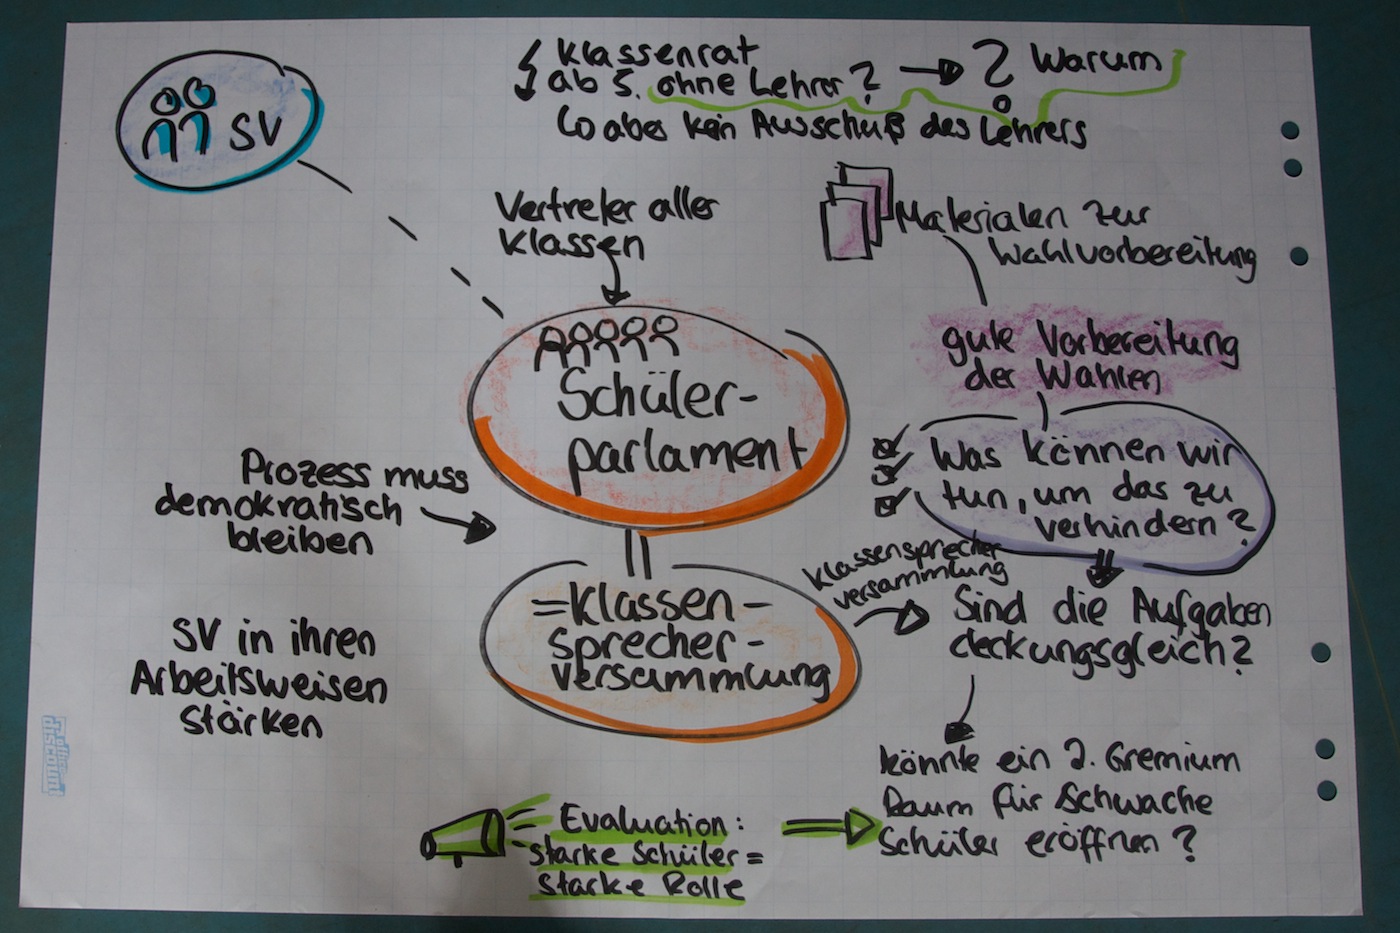 SV
Klassenrat
ab 5. ohne Lehrer? → ? Warum
aber kein Ausschuß des Lehrers
Vertreter aller
Klassen
Materialen zur
Wahlvorbereitung
gute Vorbereitung
der Wahlen
Schüler-
parlament
Was können wir
tun, um das zu
verhindern?
Prozess muss
demokratisch
bleiben
=Klassen-
sprecher-
versammlung
Klassensprecher
versammlung
Sind die Aufgaben
deckungsgleich?
SV in ihren
Arbeitsweisen
stärken
könnte ein 2. Gremium
Raum für schwache
Schüler eröffnen?
Evaluation:
starke Schüler =
starke Rolle
discount